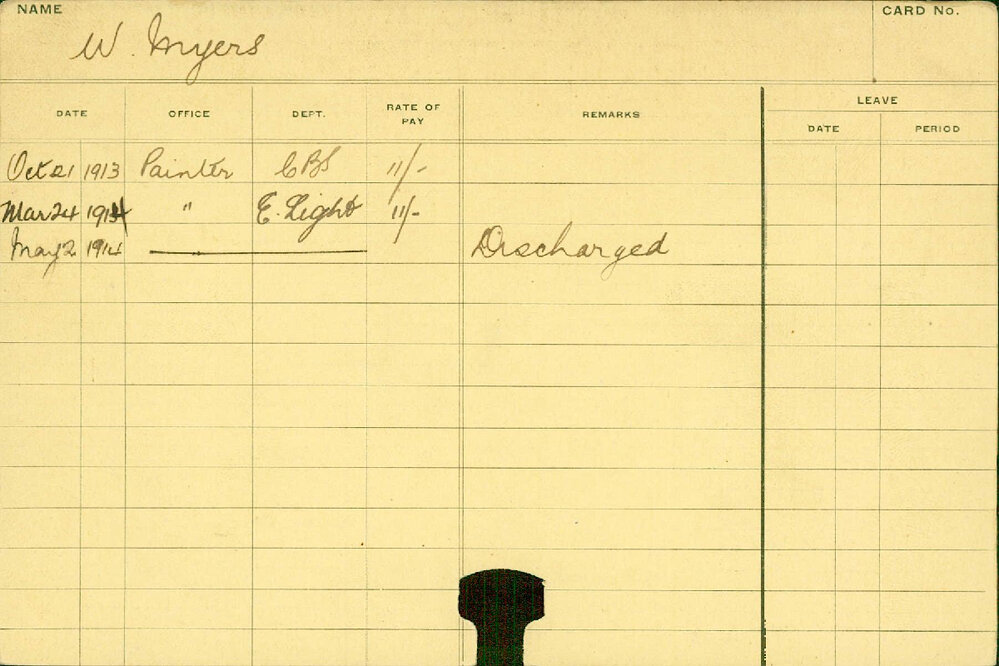 NAME CARD No.
W. Myers
DATE OFFICE DEPT. RATE OF PAY REMARKS LEAVE
DATE PERIOD
Oct 21 1913 Painter CBS 11/-
Mar 24 1914 " E. Light 11/-
May 2 1914 Discharged